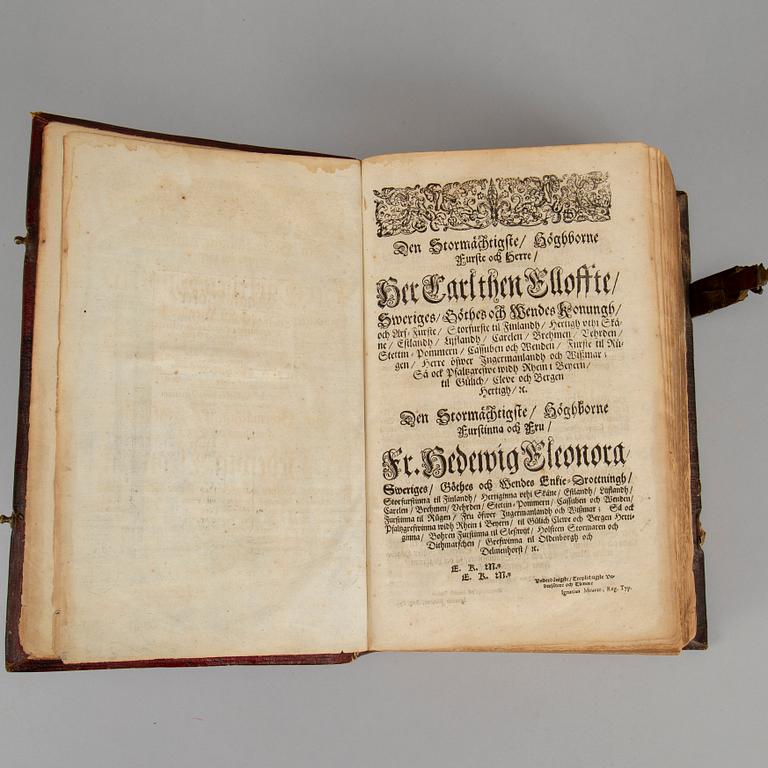 Den Stormächtigste/ Höghborne
Furste och Herre/
Her Carl then Elloffte/
Sweriges/ Göthes och Wendes Konungh/
och Arf-Furste/ Storfurste til Finlandh/ Hertigh vthi Skå-
ne/ Estlandh/ Lijflandh/ Carelen/ Brehmen/ Vehrden/
Stettin-Pommern/ Cassuben och Wenden/ Furste til Rü-
gen/ Herre öfwer Ingermanlandh och Wißmar;
Så ock Pfaltzgrefwe widh Rhein i Beyern/
til Gülich/ Cleve och Bergen
Hertigh/ ꝛc.
Den Stormächtigste/ Höghborne
Furstinna och Fru/
Fr. Hedewig Eleonora/
Sweriges/ Göthes och Wendes Enkie-Drottningh/
Storfurstinna til Finlandh/ Hertiginna vthi Skåne/ Estlandh/ Lijflandh/
Carelen/ Brehmen/ Vehrden/ Stettin-Pommern/ Cassuben och Wenden/
Furstinna til Rügen/ Fru öfwer Ingermanlandh och Wißmar; Så ock
Pfaltzgrefwinna widh Rhein i Beyern/ til Gülich Cleve och Bergen Herti-
ginna/ Bohren Furstinna til Sleßwijk/ Holsteen Stormaren och
Diethmarschen/ Grefwinna til Oldenborgh och
Delmenhorst/ ꝛc.
E. K. M.tz
E. K. M.tz
Underdånigste/ Troplichtigste Un-
dersåtere och Tienare
Ignatius Meurer, Reg. Typ.